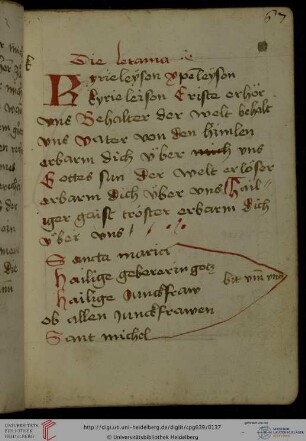 67
Die letania ꝛc
Kyrieleyson xpeleyson
kyrieleison Criste erhör
vns Behalter der welt behalt
vns vater von den himlen
erbarm dich vber mich vns
Gottes sun der welt erlöser
erbarm dich vber vns Hail-
iger gaist tröster erbarm dich
vber vns
Sancta maria
Hailige gebererin gotz
Hailige Junckfraw
bit vmb vns
ob allen Junckfrawen
Sant michel
UNIVERSITÄTS-
BIBLIOTHEK
HEIDELBERG
http://digi.ub.uni-heidelberg.de/diglit/cpg639/0137
© Universitätsbibliothek Heidelberg